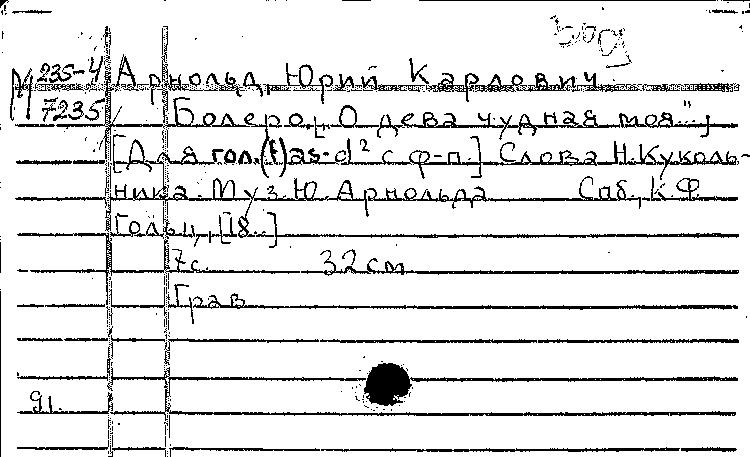 Вод
М 235-4 Арнольд, Юрий Карлович.
7235 Болеро. [„О дева чудная моя..."]
[Для гол. (t) as-d² с ф-п.] Слова Н. Куколь-
ника. Муз. Ю. Арнольда Спб., К. Ф.
Гольц, [18..]
7 с. 32 см
Грав
91.